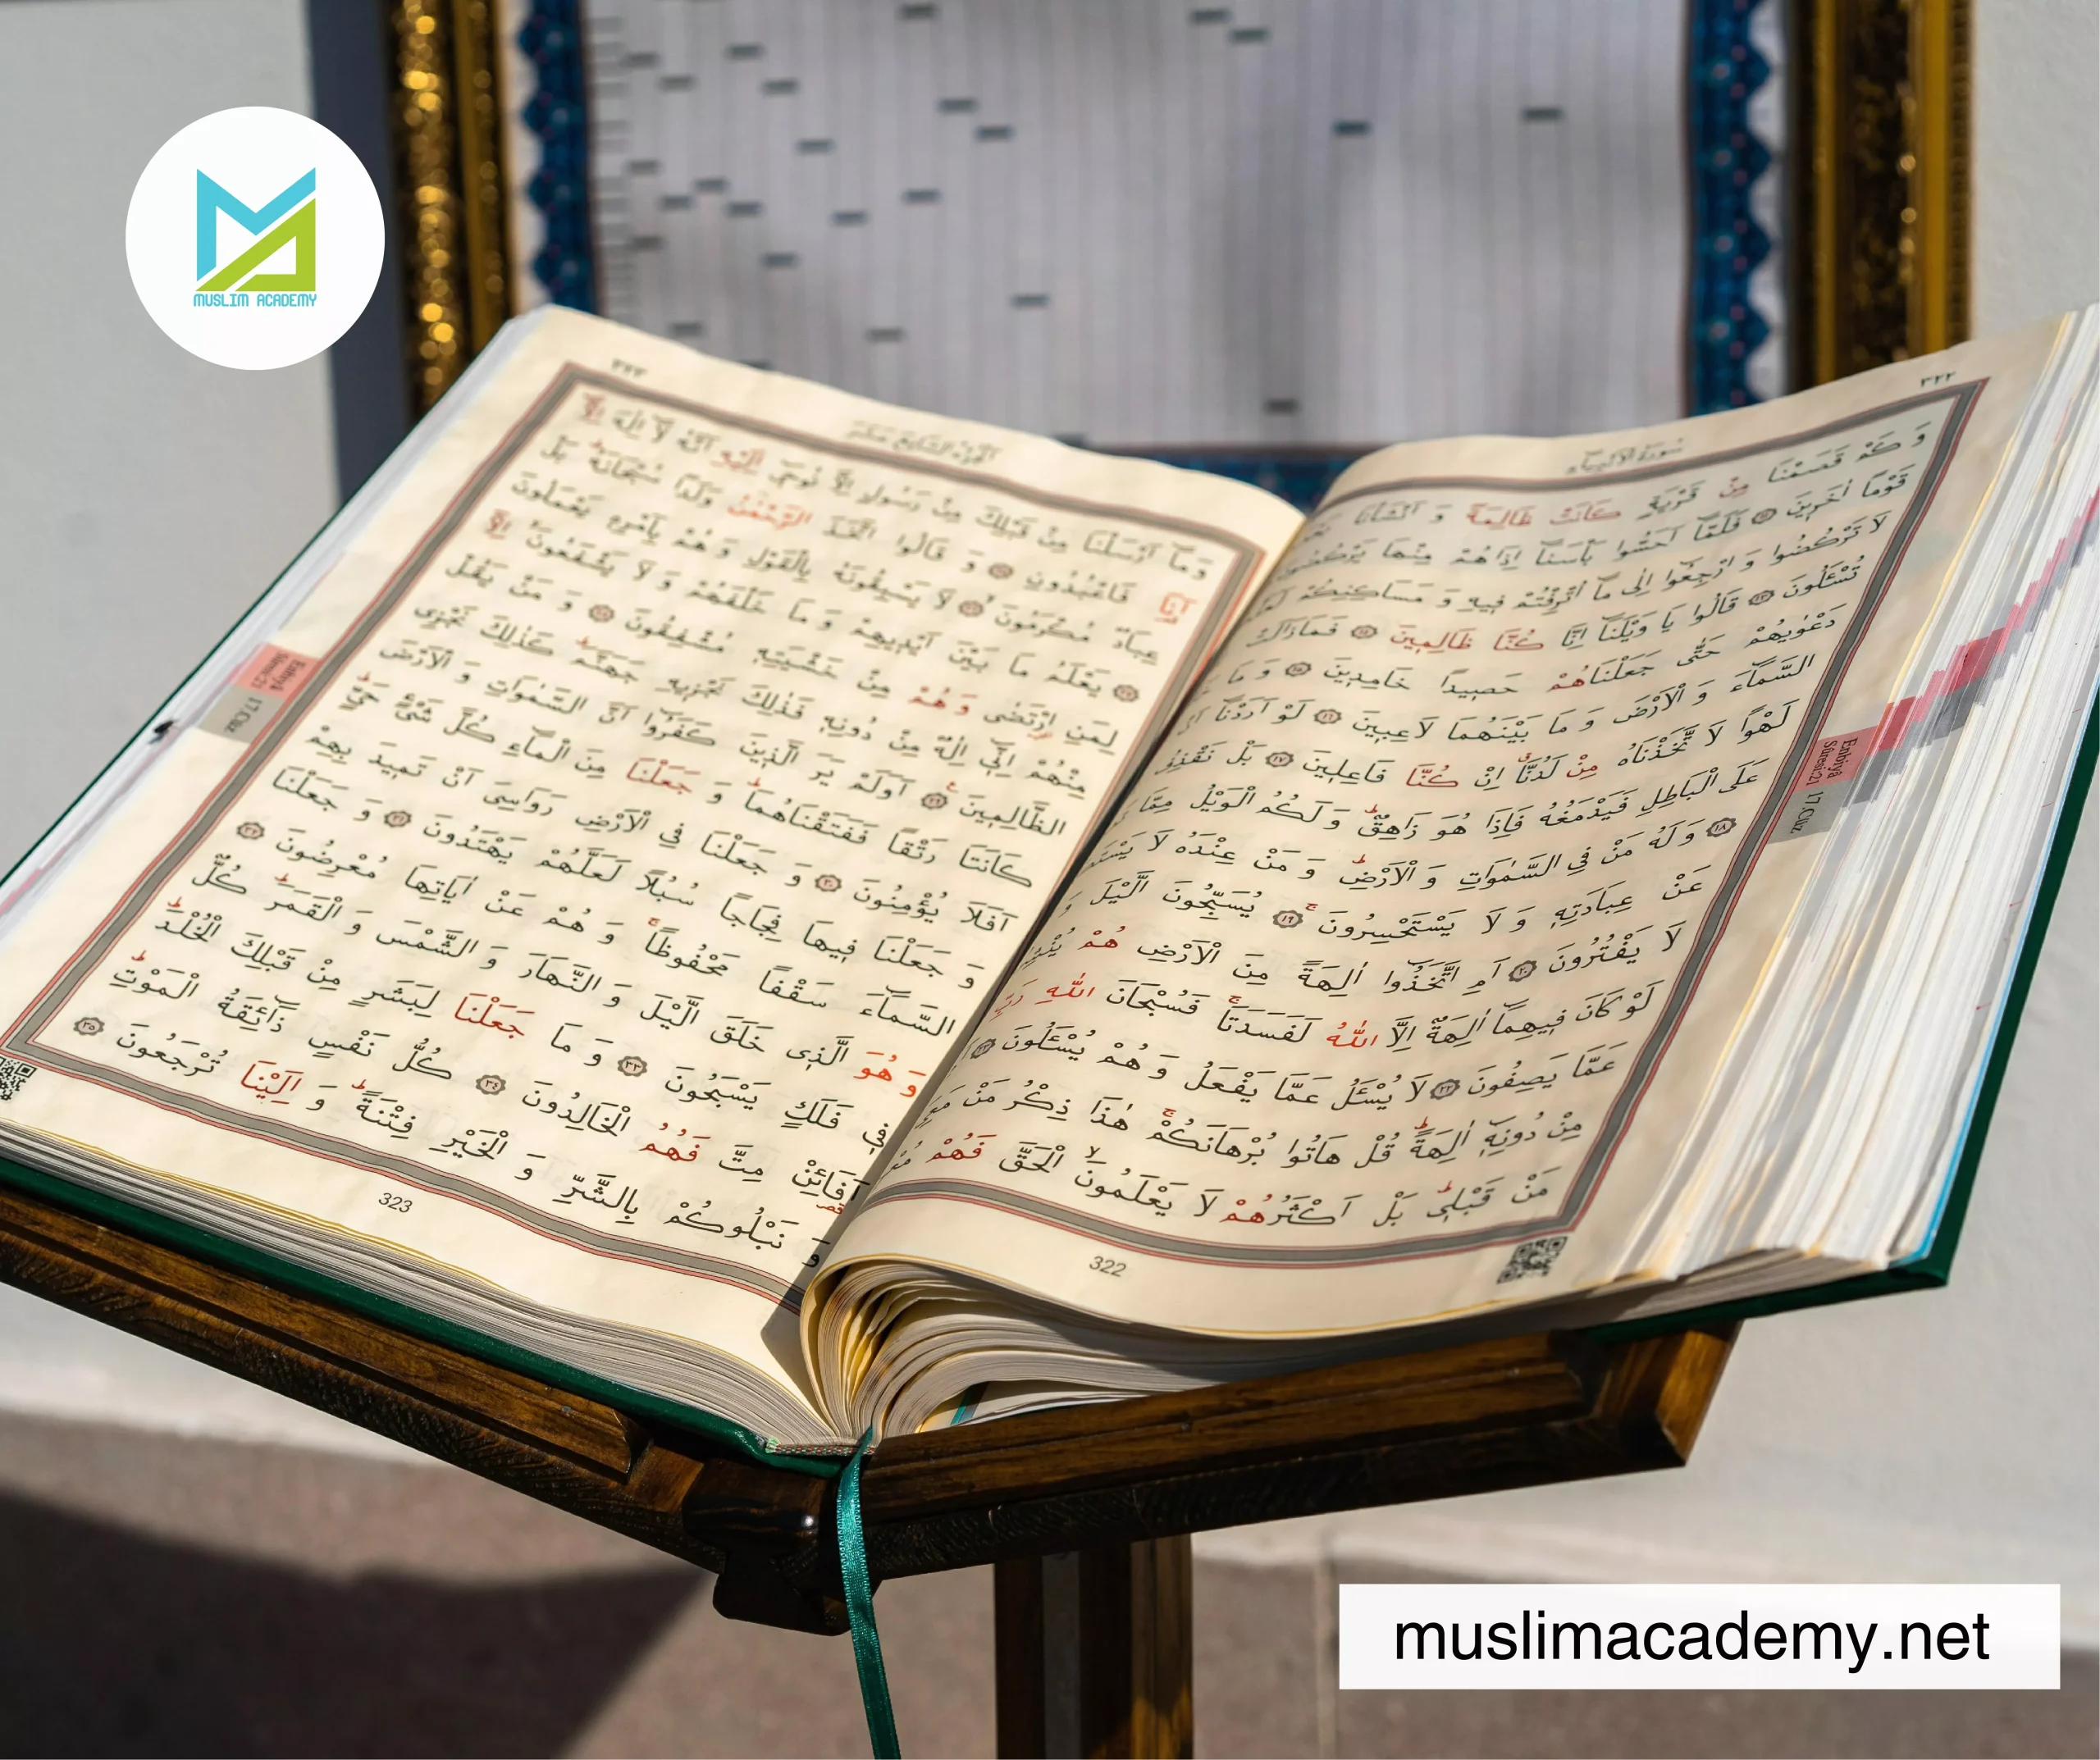 MUSLIM ACADEMY
٣٢٢
سُورَةُ الْاَنْبِيَاءِ
وَ كَمْ قَصَمْنَا مِنْ قَرْيَةٍ كَانَتْ ظَالِمَةً وَ اَنْشَأْنَا
قَوْمًا اٰخَرِينَ ۝١١ فَلَمَّٓا اَحَسُّوا بَأْسَنَٓا اِذَا هُمْ مِنْهَا يَرْكُضُونَ
لَا تَرْكُضُوا وَ ارْجِعُٓوا اِلٰى مَٓا اُتْرِفْتُمْ فِيهِ وَ مَسَاكِنِكُمْ
تُسْـَٔلُونَ ۝١٣ قَالُوا يَا وَيْلَنَٓا اِنَّا كُنَّا ظَالِمِينَ ۝١٤ فَمَا زَالَتْ
دَعْوٰيهُمْ حَتّٰى جَعَلْنَاهُمْ حَصِيدًا خَامِدِينَ ۝١٥ وَ مَا
السَّمَٓاءَ وَ الْاَرْضَ وَ مَا بَيْنَهُمَا لَاعِبِينَ ۝١٦ لَوْ اَرَدْنَٓا
لَهْوًا لَا تَّخَذْنَاهُ مِنْ لَدُنَّٓا اِنْ كُنَّا فَاعِلِينَ ۝١٧ بَلْ نَقْذِفُ
عَلَى الْبَاطِلِ فَيَدْمَغُهُ فَاِذَا هُوَ زَاهِقٌ وَ لَكُمُ الْوَيْلُ مِمَّا
۝١٨ وَ لَهُ مَنْ فِي السَّمٰوَاتِ وَ الْاَرْضِ وَ مَنْ عِنْدَهُ لَا
عَنْ عِبَادَتِهِ وَ لَا يَسْتَحْسِرُونَ ۝١٩ يُسَبِّحُونَ الَّيْلَ وَ
لَا يَفْتُرُونَ ۝٢٠ اَمِ اتَّخَذُٓوا اٰلِهَةً مِنَ الْاَرْضِ هُمْ
لَوْ كَانَ فِيهِمَٓا اٰلِهَةٌ اِلَّا اللّٰهُ لَفَسَدَتَا فَسُبْحَانَ اللّٰهِ رَبِّ
عَمَّا يَصِفُونَ ۝٢٢ لَا يُسْـَٔلُ عَمَّا يَفْعَلُ وَ هُمْ يُسْـَٔلُونَ ۝٢٣
مِنْ دُونِهِٓ اٰلِهَةً قُلْ هَاتُوا بُرْهَانَكُمْ هٰذَا ذِكْرُ مَنْ
مَنْ قَبْلِى بَلْ اَكْثَرُهُمْ لَا يَعْلَمُونَ الْحَقَّ فَهُمْ
322
Enbiyâ Sûresi:21
17.Cüz
٣٢٣
اَلْجُزْءُ السَّابِعَ عَشَرَ
وَ مَٓا اَرْسَلْنَا مِنْ قَبْلِكَ مِنْ رَسُولٍ اِلَّا نُوحِٓى اِلَيْهِ اَنَّهُ لَٓا اِلٰهَ اِلَّٓا
اَنَا فَاعْبُدُونِ ۝٢٥ وَ قَالُوا اتَّخَذَ الرَّحْمٰنُ وَلَدًا سُبْحَانَهُ بَلْ
عِبَادٌ مُكْرَمُونَ ۝٢٦ لَا يَسْبِقُونَهُ بِالْقَوْلِ وَ هُمْ بِاَمْرِهِ يَعْمَلُونَ
۝٢٧ يَعْلَمُ مَا بَيْنَ اَيْدِيهِمْ وَ مَا خَلْفَهُمْ وَ لَا يَشْفَعُونَ اِلَّا
لِمَنِ ارْتَضٰى وَ هُمْ مِنْ خَشْيَتِهِ مُشْفِقُونَ ۝٢٨ وَ مَنْ يَقُلْ
مِنْهُمْ اِنِّٓى اِلٰهٌ مِنْ دُونِهِ فَذٰلِكَ نَجْزِيهِ جَهَنَّمَ كَذٰلِكَ نَجْزِى
الظَّالِمِينَ ۝٢٩ اَوَلَمْ يَرَ الَّذِينَ كَفَرُٓوا اَنَّ السَّمٰوَاتِ وَ الْاَرْضَ
كَانَتَا رَتْقًا فَفَتَقْنَاهُمَا وَ جَعَلْنَا مِنَ الْمَٓاءِ كُلَّ شَىْءٍ حَىٍّ
اَفَلَا يُؤْمِنُونَ ۝٣٠ وَ جَعَلْنَا فِي الْاَرْضِ رَوَاسِىَ اَنْ تَمِيدَ بِهِمْ
وَ جَعَلْنَا فِيهَا فِجَاجًا سُبُلًا لَعَلَّهُمْ يَهْتَدُونَ ۝٣١ وَ جَعَلْنَا
السَّمَٓاءَ سَقْفًا مَحْفُوظًا وَ هُمْ عَنْ اٰيَاتِهَا مُعْرِضُونَ ۝٣٢
وَ هُوَ الَّذِى خَلَقَ الَّيْلَ وَ النَّهَارَ وَ الشَّمْسَ وَ الْقَمَرَ كُلٌّ
فِي فَلَكٍ يَسْبَحُونَ ۝٣٣ وَ مَا جَعَلْنَا لِبَشَرٍ مِنْ قَبْلِكَ الْخُلْدَ
اَفَائِنْ مِتَّ فَهُمُ الْخَالِدُونَ ۝٣٤ كُلُّ نَفْسٍ ذَٓائِقَةُ الْمَوْتِ
وَ نَبْلُوكُمْ بِالشَّرِّ وَ الْخَيْرِ فِتْنَةً وَ اِلَيْنَا تُرْجَعُونَ ۝٣٥
323
Enbiyâ Sûresi:21
17.Cüz
muslimacademy.net